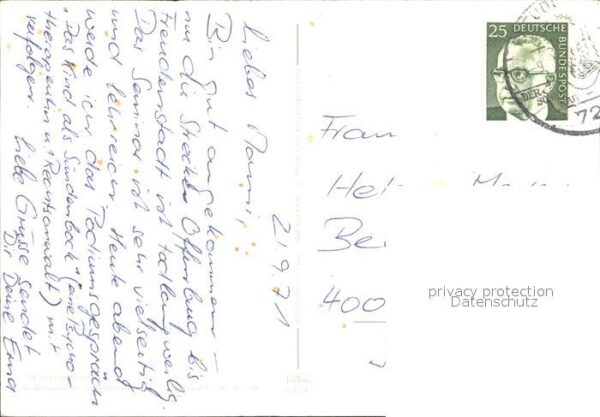 21.9.71
Liebes Mammi,
Bin gut angekommen –
nur die Strecke Offenburg bis
Freudenstadt ist todlangweilig.
Das Seminar ist sehr vielseitig
und lehrreich. Heute abend
werde ich das Podiumsgespräch
"Das Kind als Sündenbock" (eine Psycho-
therapeutin u. Rechtsanwalt) mit
verfolgen. Liebe Grüsse sendet
Dir Deine
25 DEUTSCHE
BUNDESPOST
72
Frau
Be
400
privacy protection
Datenschutz